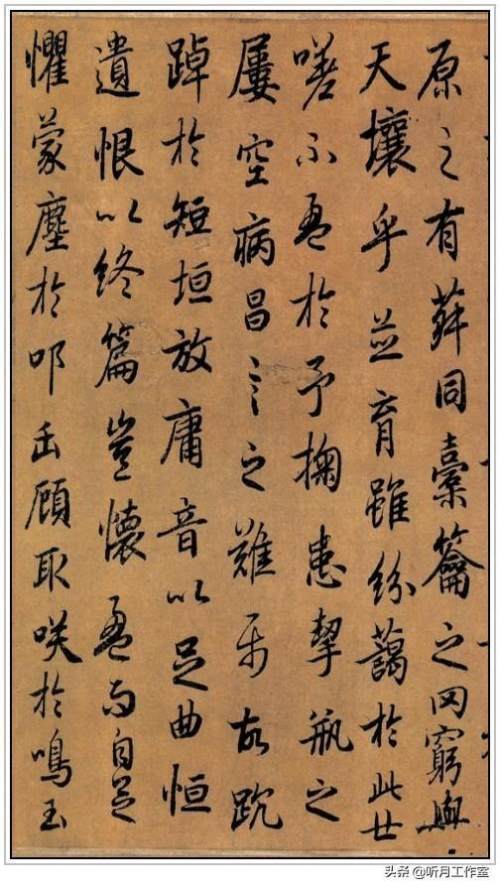 原之有菽同橐籥之罔窮與
天壤乎並育雖紛藹於此世
嗟不盈於予掬患挈瓶之
屢空病昌言之難屬故踸
踔於短垣放庸音以足曲恒
遺恨以終篇豈懷盈而自足
懼蒙塵於叩缶顧取咲於鳴玉
头条 @听月工作室